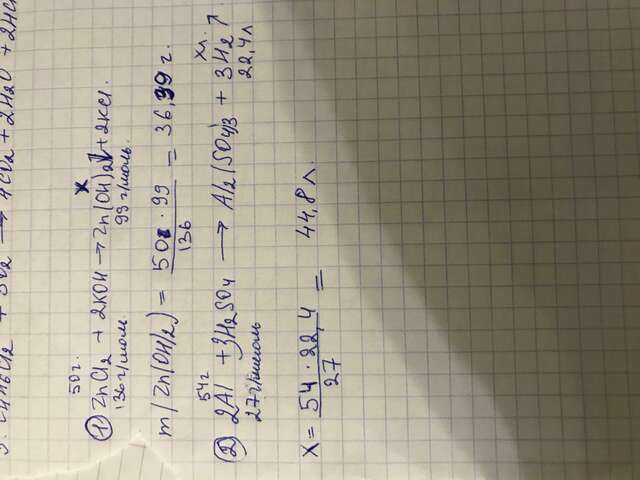 + 3O₂ → 4CO₂ + 2H₂O + 2HCl
50 г. x
① ZnCl₂ + 2KOH → Zn(OH)₂↓ + 2KCl.
136 г/моль 99 г/моль.
m(Zn(OH)₂) = 50 · 99 / 136 = 36,39 г.
54 г x л.
② 2Al + 3H₂SO₄ → Al₂(SO₄)₃ + 3H₂↑
27 г/моль 22,4 л
x = 54 · 22,4 / 27 = 44,8 л.